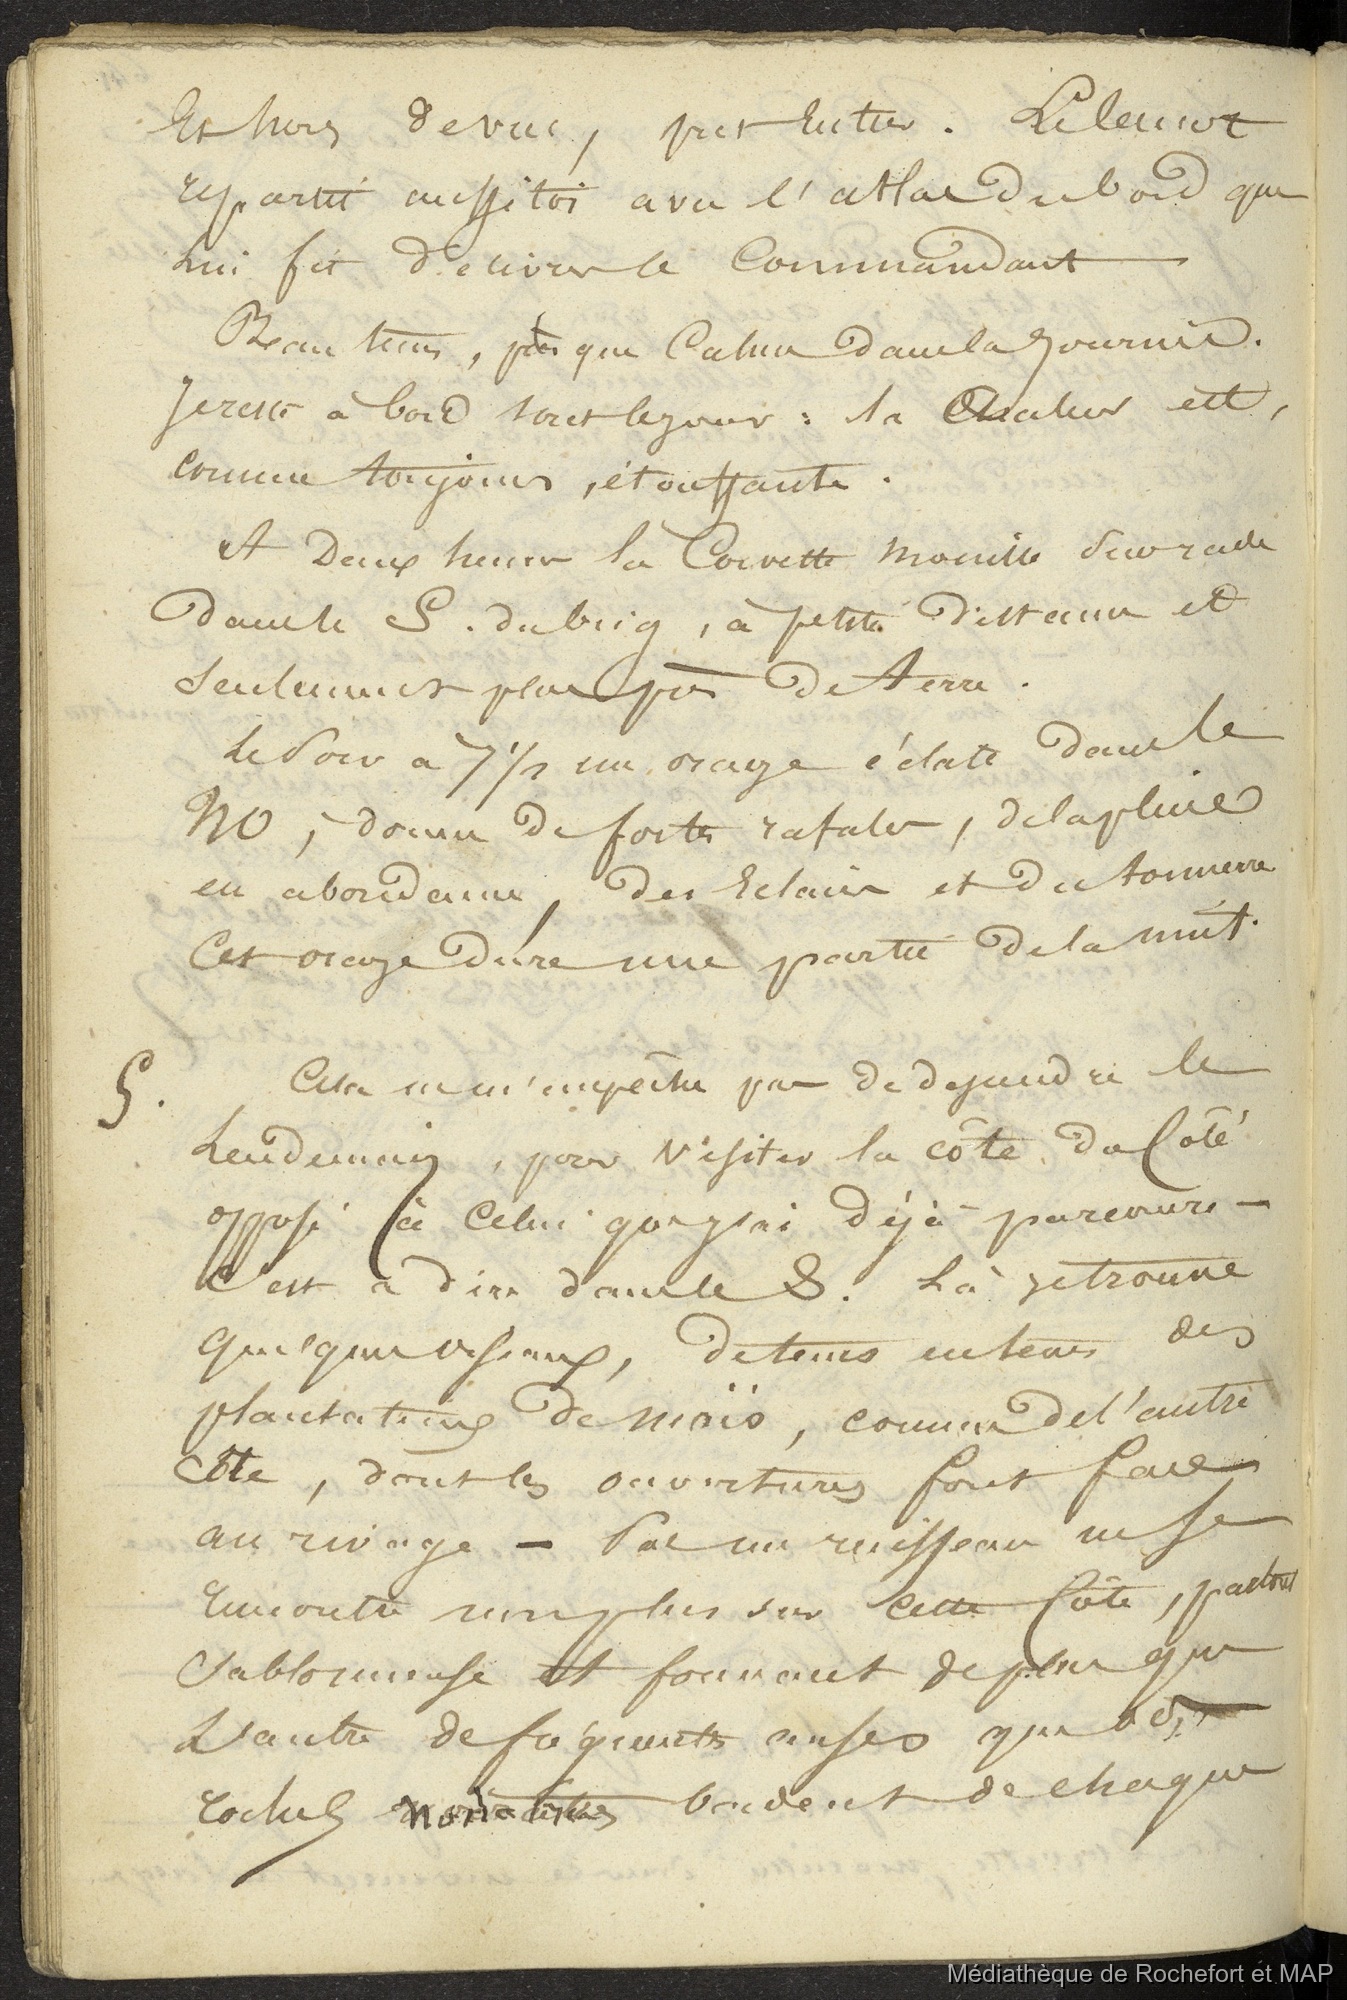 Et hors de vue, put entrer. L'élément
repartit aussitôt avec l'atlas du bord que
lui fit délivrer le Commandant
Beau tems, presque Calme dans la journée.
Je reste à bord tout le jour : la Chaleur est,
comme toujours, étouffante.
A Deux heures la Corvette mouille sur rade
dans le S. du brig, à petite distance et
seulement plus près de terre.
Le soir à 7 1/2 un orage éclate dans le
NO, donne de fortes rafales, de la pluie
en abondance, des Eclairs et du tonnerre
Cet orage dure une partie de la nuit.
5. Cela ne m'empêche pas de dejeundre le
Lendemain, pour visiter la côte du Côté
opposé à Celui que j'ai déjà parcouru –
C'est à dire dans le S. Là je trouve
quelques oiseaux, de tems en tems des
plantations de maïs, comme de l'autre
côté, dont les ouvertures font face
au rivage – Pas un ruisseau ne se
rencontre non plus sur cette Côte, partout
Sablonneuse et formant de plus que
L'autre de fréquentes anses que des
roches noirâtres bordent de chaque
Médiathèque de Rochefort et MAP